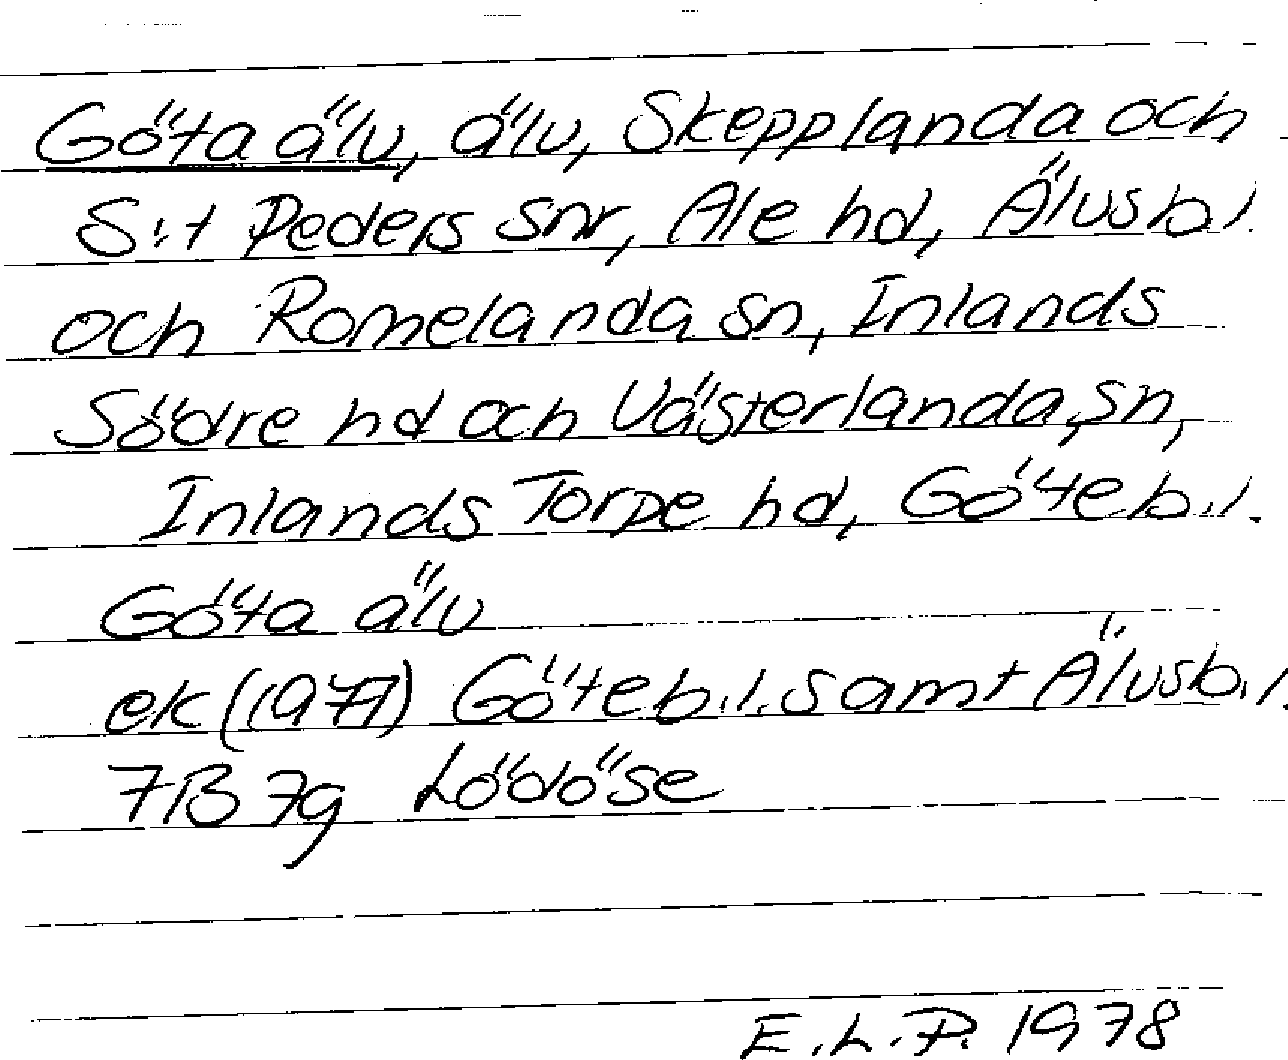 Göta älv, älv, Skepplanda och
S:t Peders snr, Ale hd, Älvsb.l.
och Romelanda sn, Inlands
Södre hd och Västerlanda, sn,
Inlands Torpe hd, Göteb.l.
Göta älv
ek (1977) Göteb.l. samt Älvsb.l.
7B 7g Lödöse
E.L.P. 1978